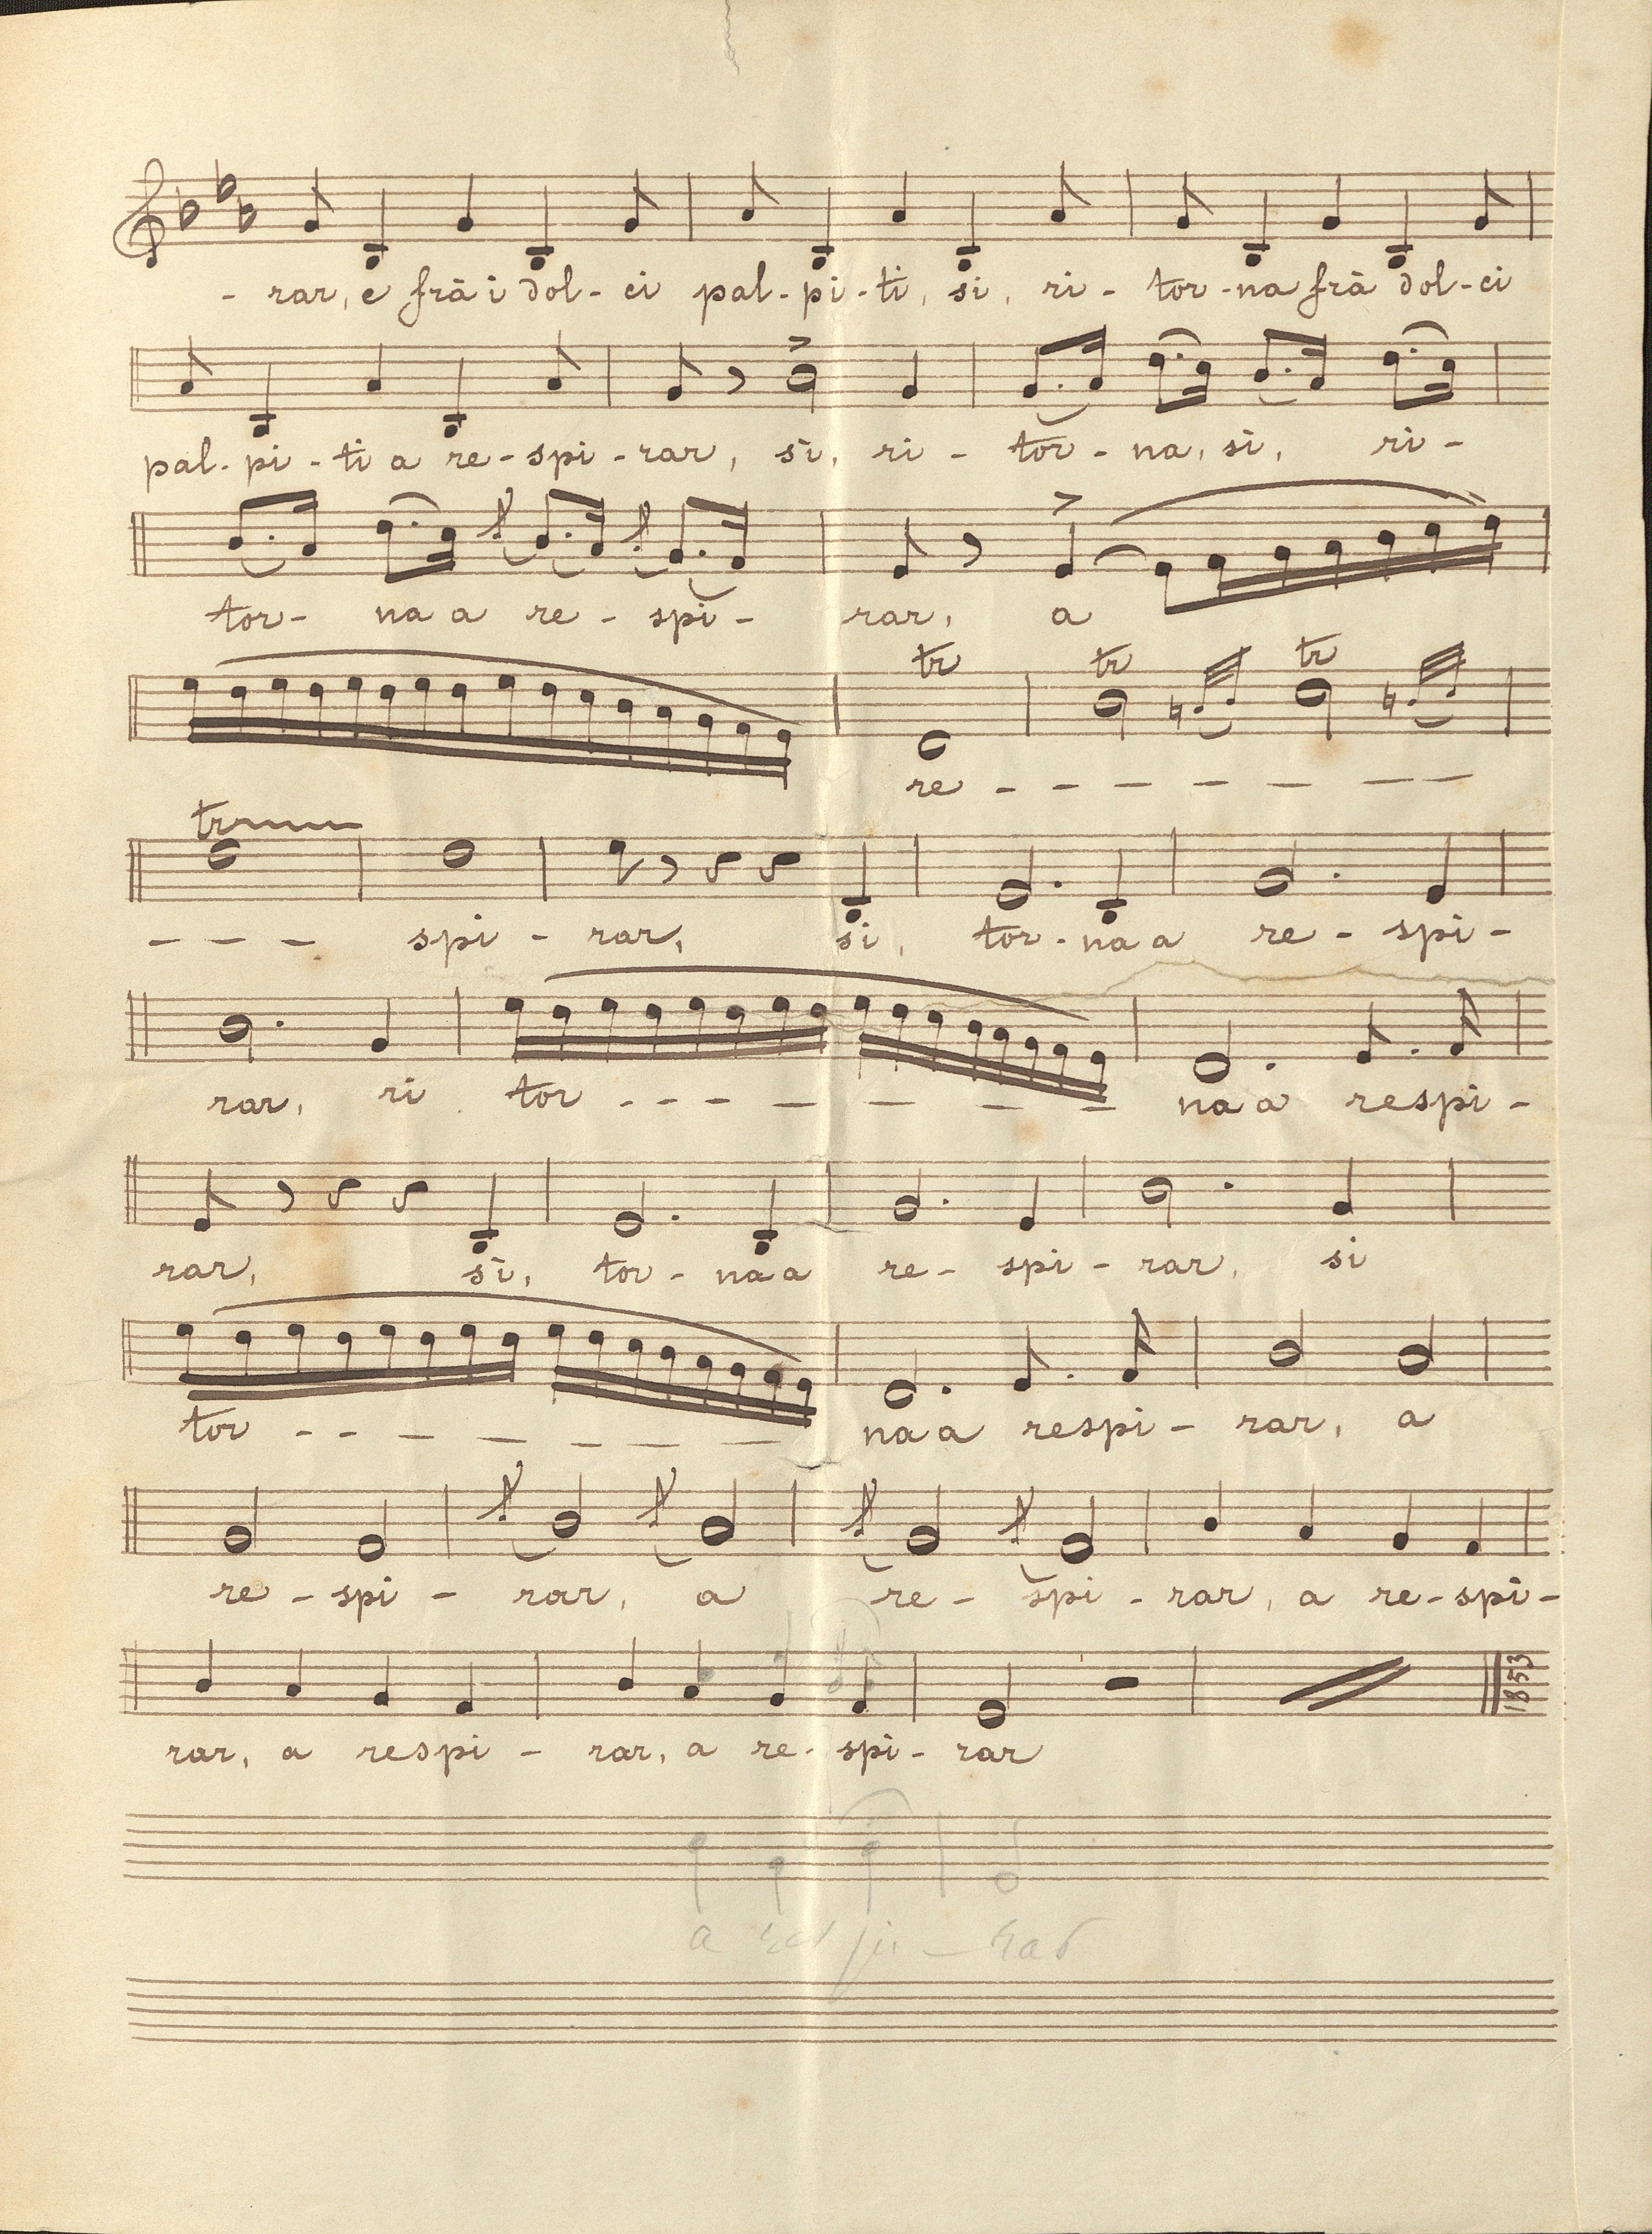 - rar, e frà i dol - ci pal - pi - ti, si, ri - tor - na frà dol - ci
pal - pi - ti a re - spi - rar, si, ri - tor - na, si, ri -
tor - na a re - spi - rar, a
tr tr tr
re - - - - - - -
tr
- - - spi - rar, si, tor - na a re - spi -
rar, ri tor - - - - - - - na a respi -
rar, si, tor - na a re - spi - rar, si
tor - - - - - - - na a respi - rar, a
re - spi - rar, a re - spi - rar, a re - spi -
1853
rar, a respi - rar, a re - spi - rar